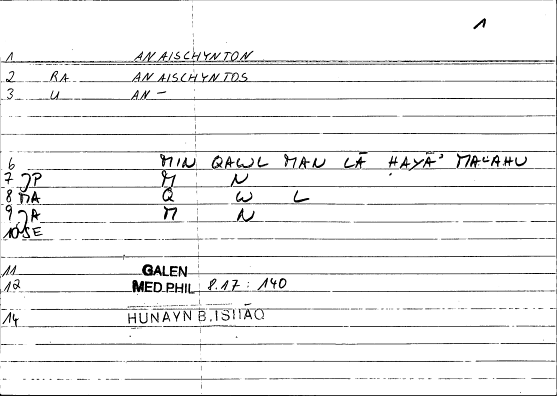 1
1 ANAISCHYNTON
2 RA ANAISCHYNTOS
3 U AN-
6 MIN QAWL MAN LĀ ḤAYĀʾ MAʿAHU
7 JP M N
8 MA Q W L
9 JA M N
10 SE
11 GALEN
12 MED.PHIL 8.17 : 140
14 HUNAYN B. ISHĀQ